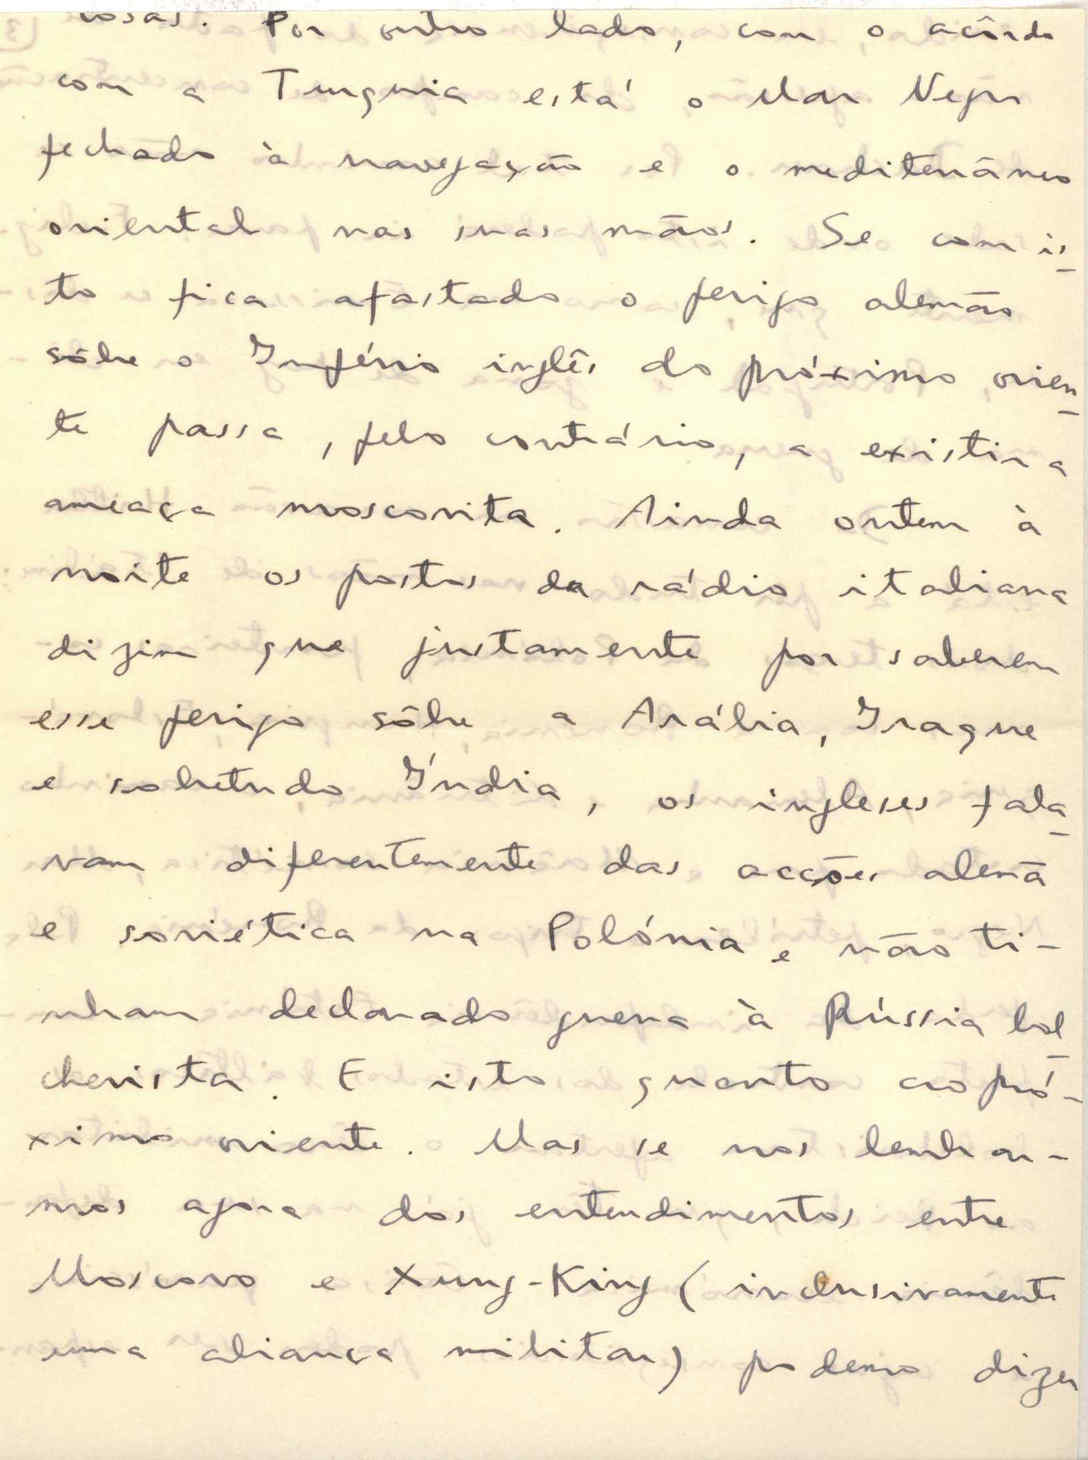 cosas. Por outro lado, com o acôrdo
com a Turquia está o Mar Negro
fechado à navegação e o mediterrâneo
oriental nas suas mãos. Se com is-
to fica afastado o perigo alemão
sôbre o Império inglês do próximo orien-
te passa, pelo contrário, a existir a
ameaça moscovita. Ainda ontem à
noite os postos da rádio italiana
dizim que justamente por saberem
esse perigo sôbre a Arábia, Iraque
e sobretudo Índia, os ingleses fala-
vam diferentemente das acções alemã
e soviética na Polónia e não ti-
nham declarado guerra à Rússia bol-
chevista. E isto quanto ao pró-
ximo oriente. Mas se nos lembrar-
mos agora dos entendimentos entre
Moscovo e Xung-King (inclusivamente
uma aliança militar) podemos dizer